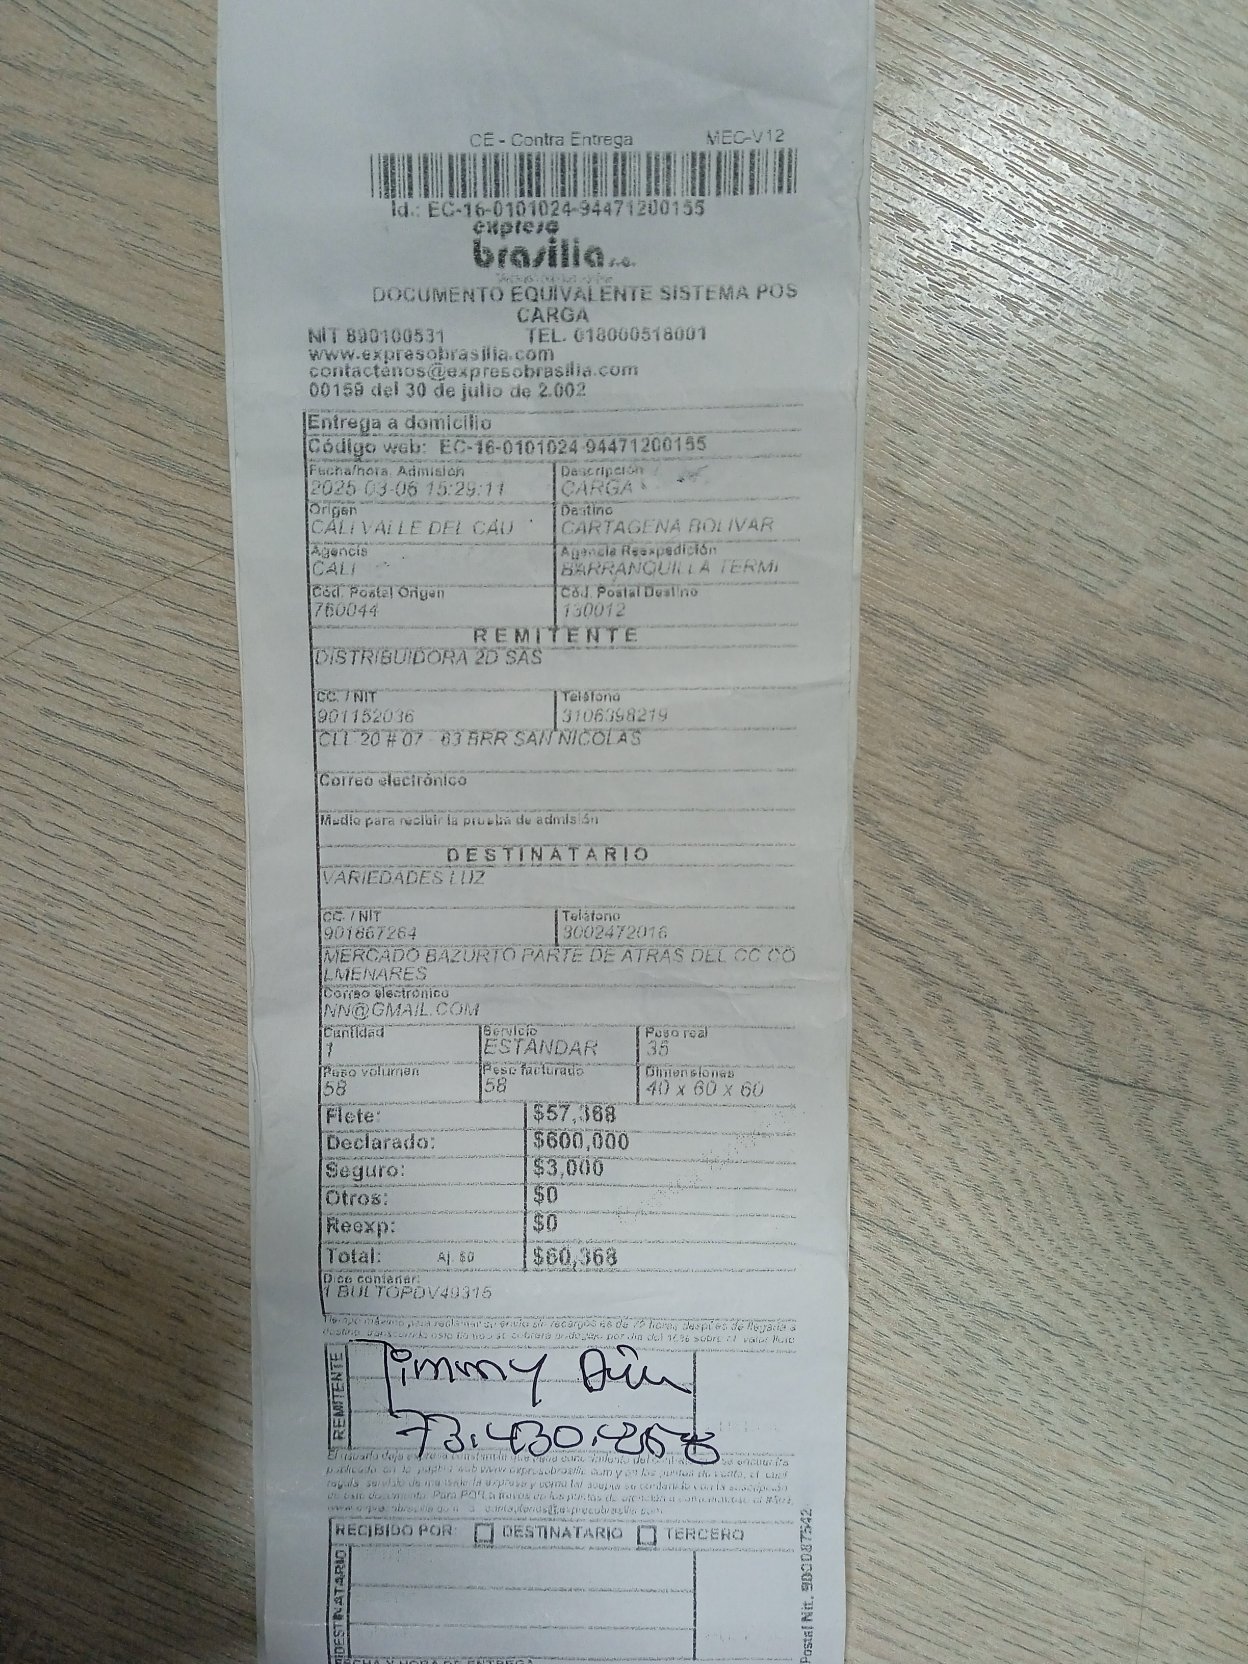 CE - Contra Entrega MEC-V12
Id.: EC-16-0101024-94471200155
expreso
brasilia s.a.
DOCUMENTO EQUIVALENTE SISTEMA POS
CARGA
NIT 890100531 TEL. 018000518001
www.expresobrasilia.com
contactenos@expresobrasilia.com
00159 del 30 de julio de 2.002
Entrega a domicilio
Código web: EC-16-0101024-94471200155
Fecha/hora. Admisión Descripción
2025-03-06 15:29:11 CARGA
Origen Destino
CALI VALLE DEL CAU CARTAGENA BOLIVAR
Agencia Agencia Reexpedición
CALI BARRANQUILLA TERMI
Cód. Postal Origen Cód. Postal Destino
760044 130012
REMITENTE
DISTRIBUIDORA 2D SAS
CC. / NIT Teléfono
901152036 3106398219
CLL 20 # 07 - 63 BRR SAN NICOLAS
Correo electrónico
Medio para recibir la prueba de admisión
DESTINATARIO
VARIEDADES LUZ
CC. / NIT Teléfono
901867264 3002472016
MERCADO BAZURTO PARTE DE ATRAS DEL CC CO
LMENARES
Correo electrónico
NN@GMAIL.COM
Cantidad Servicio Peso real
1 ESTANDAR 35
Peso volumen Peso facturado Dimensiones
58 58 40 x 60 x 60
Flete: $57,368
Declarado: $600,000
Seguro: $3,000
Otros: $0
Reexp: $0
Total: Aj. $0 $60,368
Dice contener:
1 BULTOPDV49315
Tiempo máximo para reclamar su envío sin recargos es de 72 horas, después de llegada a
REMITENTE
Jimmy
73.430.
RECIBIDO POR: DESTINATARIO TERCERO
DESTINATARIO
FECHA Y HORA DE ENTREGA
Postal Nit. 900087542